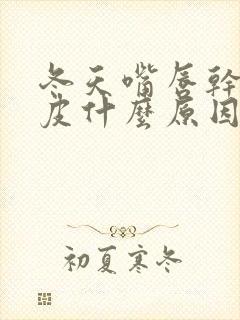 冬天嘴唇幹
皮什麼原因
初夏寒冬